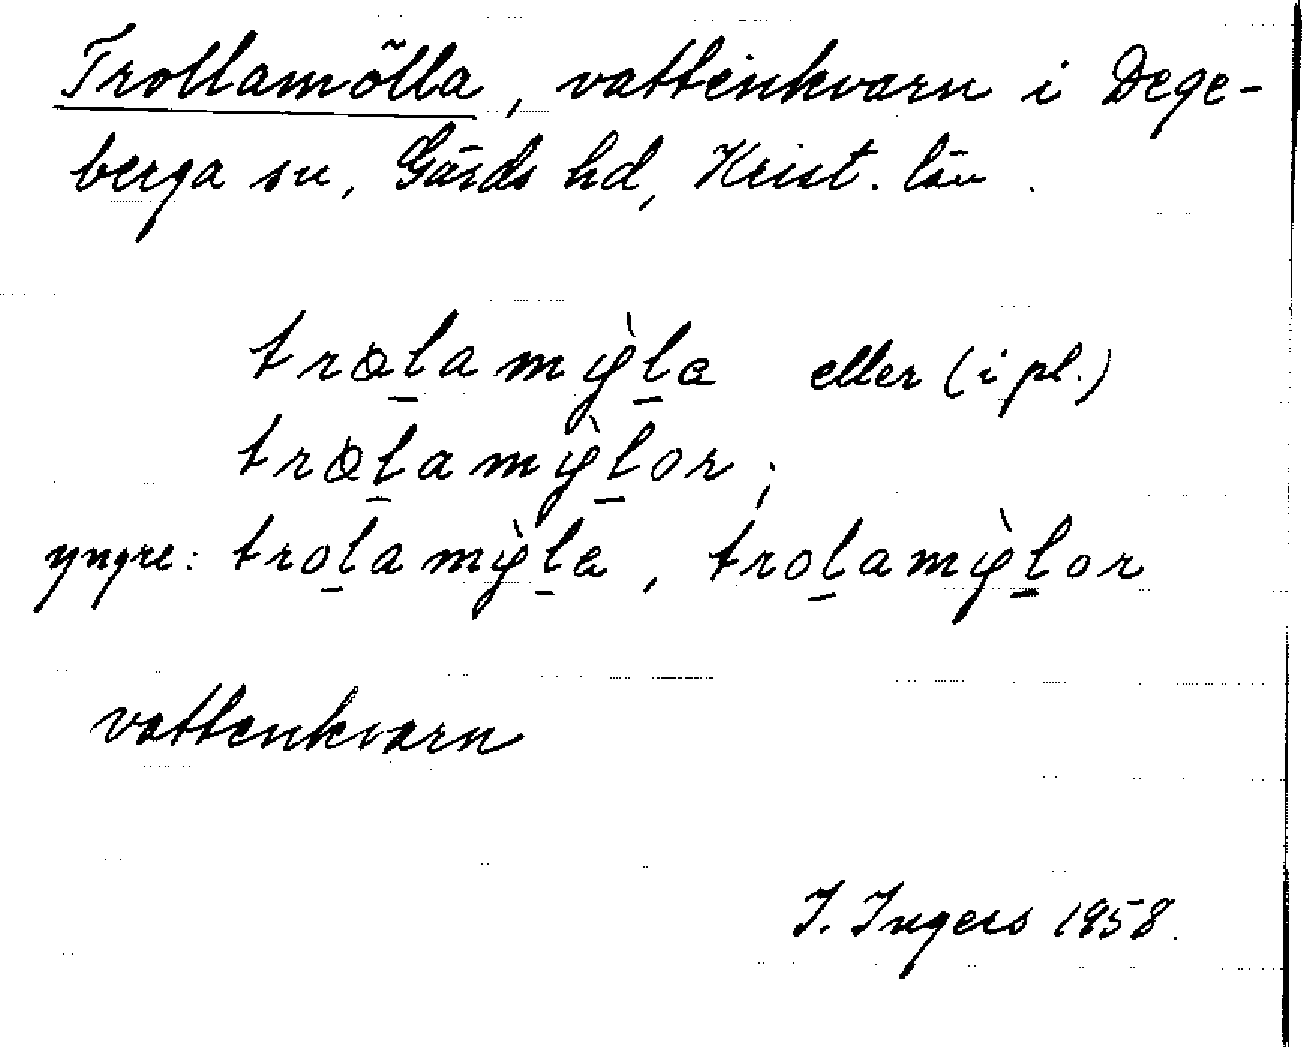 Trollamölla, vattenkvarn i Dege-
berga sn, Gärds hd, Krist. län.
trɵl̲amỳl̲a eller (i pl.)
trɵl̲amỳl̲or;
yngre: trol̲amỳl̲a, trol̲amỳl̲or
vattenkvarn
I. Ingers 1958.